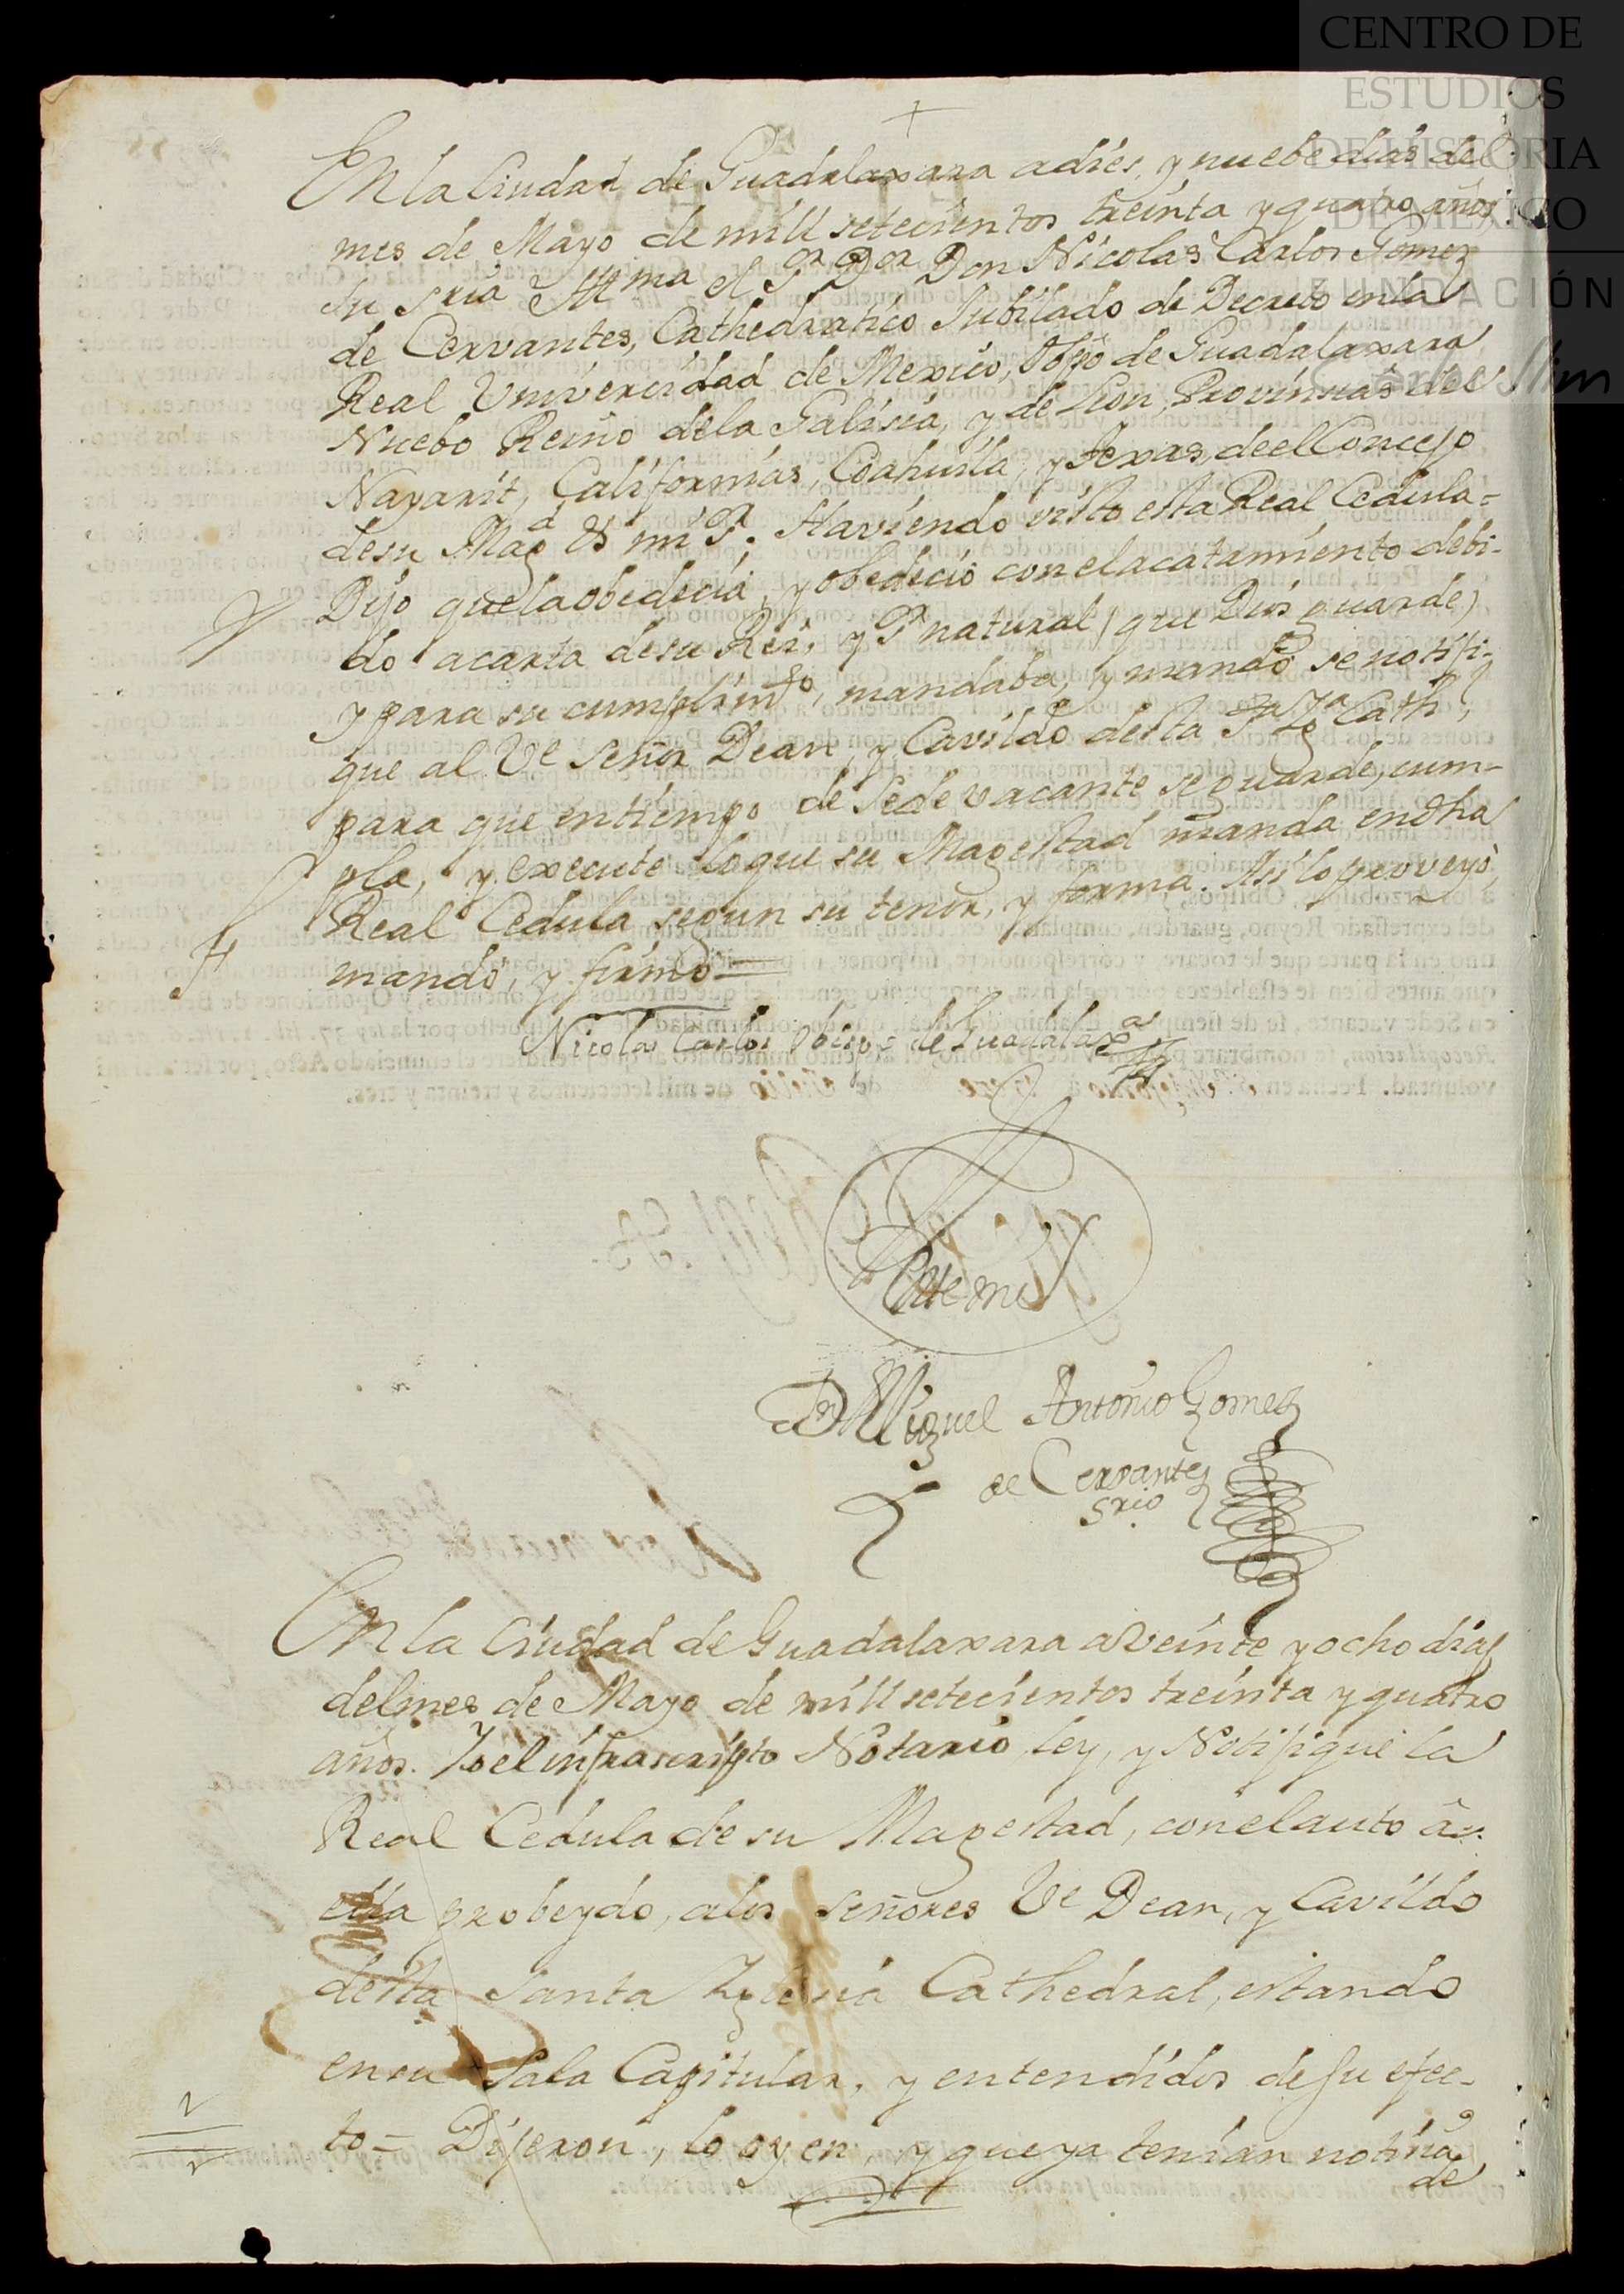 CENTRO DE
ESTUDIOS
DE HISTORIA
DE MÉXICO
FUNDACIÓN
Carlos Slim
+
En la Ciudad de Guadalaxara adies, y nuebe dias del
mes de Mayo de mill setecientos treinta y quatro años
su sria Illma el Sor Dor Don Nicolas Carlos Gomez
de Cervantes, Cathedratico Jubilado de Decreto en la
Real Univercidad de Mexico, Obpo de Guadalaxara
Nuebo Reino dela Galisia, y de Leon, Provinsias del
Nayarit, Californias, Coahuila, y texas, de el Concejo
de su Magd &ª mi Sor. Haviendo visto esta Real Cedula=
Dijo que la obedecia, y obedecio con el acatamiento debi-
do acarta de su Rei, y Sr natural (que Dios guarde)
y para su cumplimto, mandaba, y mando se notifi-
que al Ve Señor Dean, y Cavildo desta Sta Yga Cathl,
para que en tiempo de Sede vacante se guarde, cum-
pla, y execute lo que su Magestad manda en dha
Real Cedula segun su tenor, y forma. Asi lo proveyò,
mandò, y firmò=
Nicolas Carlos Obispo de Guadalaxa
Ante mi
Dn Miguel Antonio Gomez
de Cervantes
srio
En la Ciudad de Guadalaxara a Veinte y ocho dias
del mes de Mayo de mill setecientos treinta y quatro
años. Yo el infrascripto Notario ley, y Notifique la
Real Cedula de su Magestad, con el auto â
ella probeydo, alos señores Ve Dean, y Cavildo
desta Santa Iglesia Cathedral, estando
en su Sala Capitular, y entendidos de su efec-
to= Dijeron, lo oyen, y que ya tenian noticia
de